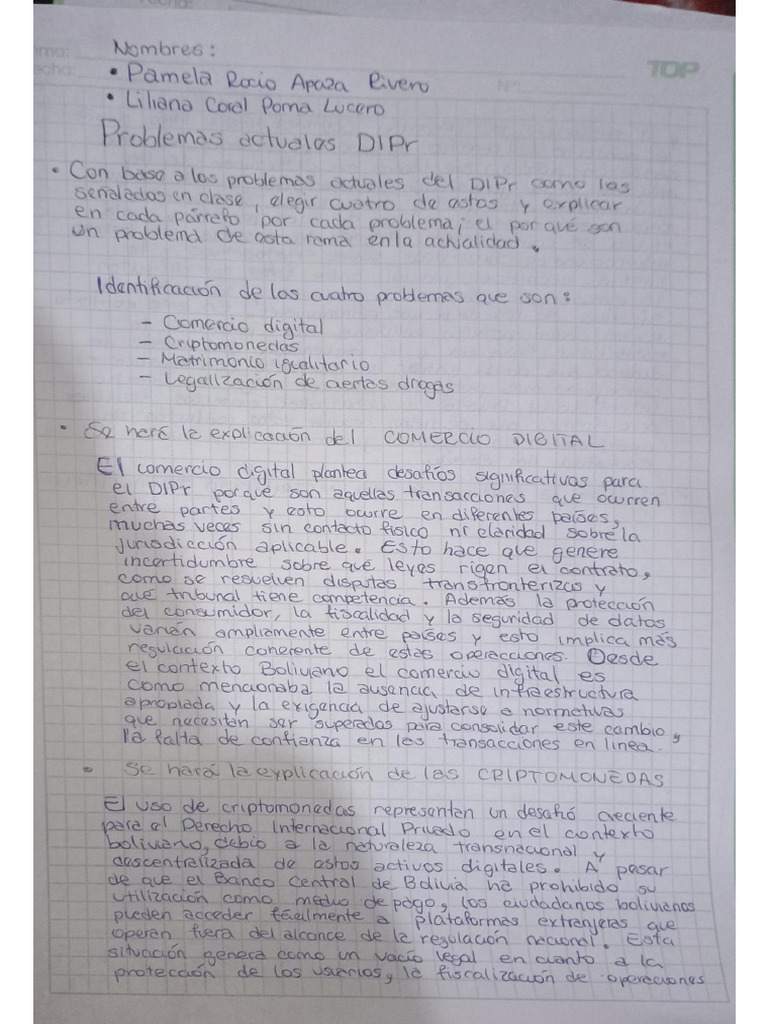 Nombres:
TOP
• Pamela Rocio Apaza Rivero
• Liliana Coral Poma Lucero
Problemas actuales DIPr
• Con base a los problemas actuales del DIPr como los
señalados en clase, elegir cuatro de estos y explicar
en cada párrafo por cada problema; el por qué son
un problema de esta rama en la actualidad.
Identificación de los cuatro problemas que son:
- Comercio digital
- Criptomonedas
- Matrimonio igualitario
- Legalización de ciertas drogas
• Se hará la explicación del COMERCIO DIGITAL
El comercio digital plantea desafíos significativos para
el DIPr porque son aquellas transacciones que ocurren
entre partes y esto ocurre en diferentes países,
muchas veces sin contacto físico ni claridad sobre la
jurisdicción aplicable. Esto hace que genere
incertidumbre sobre qué leyes rigen el contrato,
como se resuelven disputas transfronterizas y
que tribunal tiene competencia. Además la protección
del consumidor, la fiscalidad y la seguridad de datos
varían ampliamente entre países y esto implica más
regulación coherente de estas operacciones. Desde
el contexto Boliviano el comercio digital es
como mencionaba la ausencia de infraestructura
apropiada y la exigencia de ajustarse a normativas
que necesitan ser superados para consolidar este cambio,
la falta de confianza en las transacciones en linea.
• Se hará la explicación de las CRIPTOMONEDAS
El uso de criptomonedas representan un desafió creciente
para el Derecho Internacional Privado en el contexto
boliviano, debio a la naturaleza transnacional y
descentralizada de estos activos digitales. A pesar
de que el Banco Central de Bolivia ha prohibido su
utilización como medio de pago, los ciudadanos bolivianos
pueden acceder facilmente a plataformas extranjeras que
operan fuera del alcance de la regulación nacional. Esta
situación genera como un vacío legal en cuanto a la
protección de los usuarios, la fiscalización de operaciones